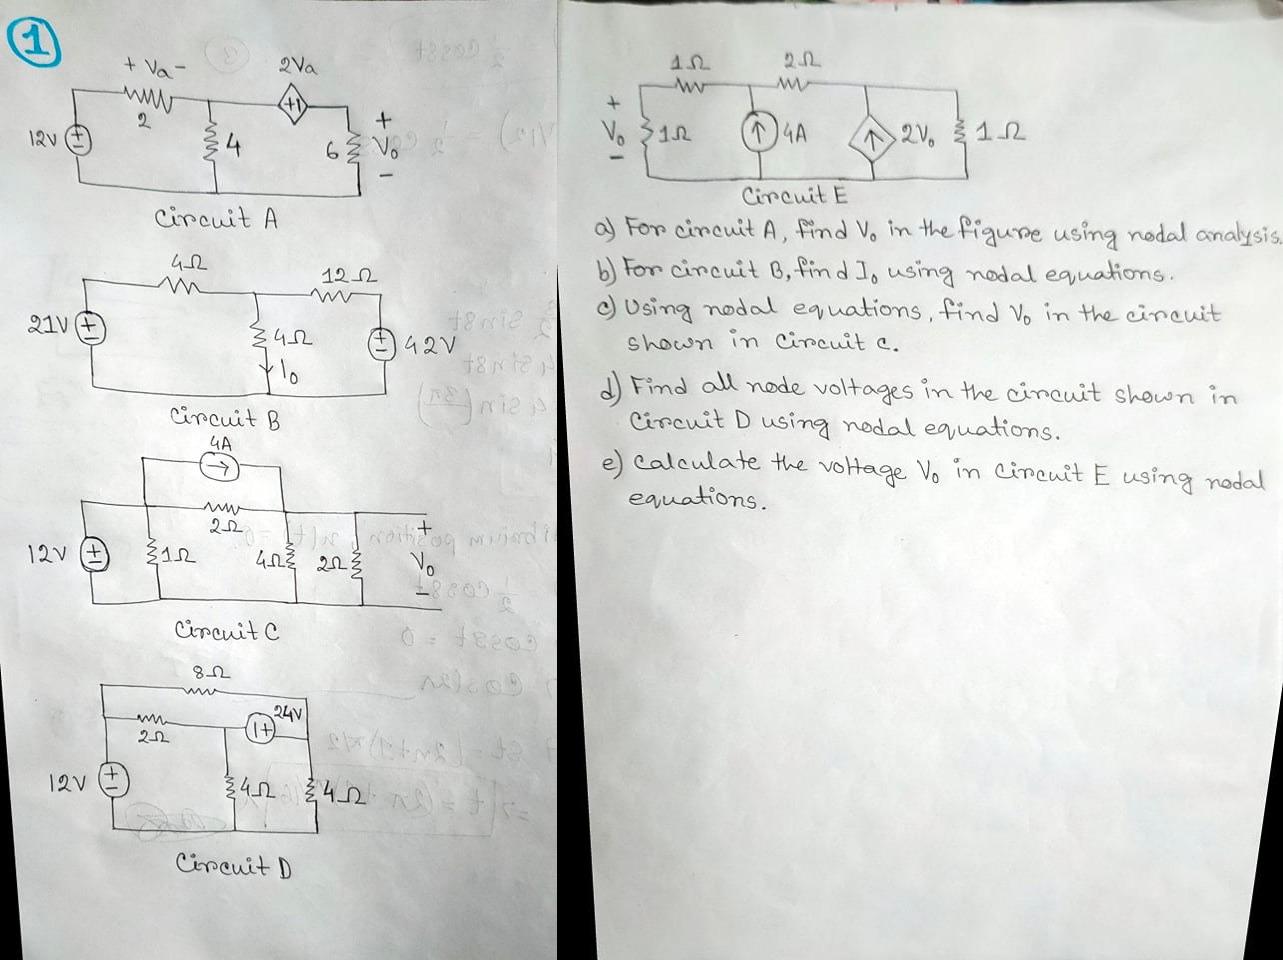 1
+ Va -
2Va
2
+1
12V
+
-
4
6
+
Vo
-
Circuit A
4Ω
12Ω
21V
+
-
4Ω
Io
+
-
42V
Circuit B
4A
2Ω
12V
+
-
1Ω
4Ω
2Ω
+
Vo
-
Circuit C
8Ω
2Ω
24V
1+
12V
+
-
4Ω
4Ω
Circuit D
1Ω
2Ω
+
Vo
-
1Ω
4A
2Vo
1Ω
Circuit E
a) For circuit A, find Vo in the figure using nodal analysis.
b) For circuit B, find Io using nodal equations.
c) Using nodal equations, find Vo in the circuit
shown in circuit c.
d) Find all node voltages in the circuit shown in
Circuit D using nodal equations.
e) Calculate the voltage Vo in Circuit E using nodal
equations.